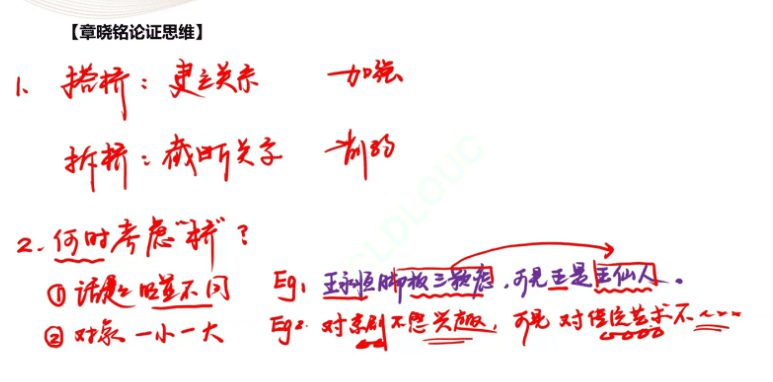 【章晓铭论证思维】
1. 搭桥：建立关系 —加强
拆桥：截断关系 —削弱
2. 何时考虑“桥”？
① 话题明显不同 Eg1 王永恒脚板三颗痣，可见王是王仙人。
② 对象一小一大 Eg2. 对京剧不感兴趣，可见对传统艺术不~~~
GLDLOUC